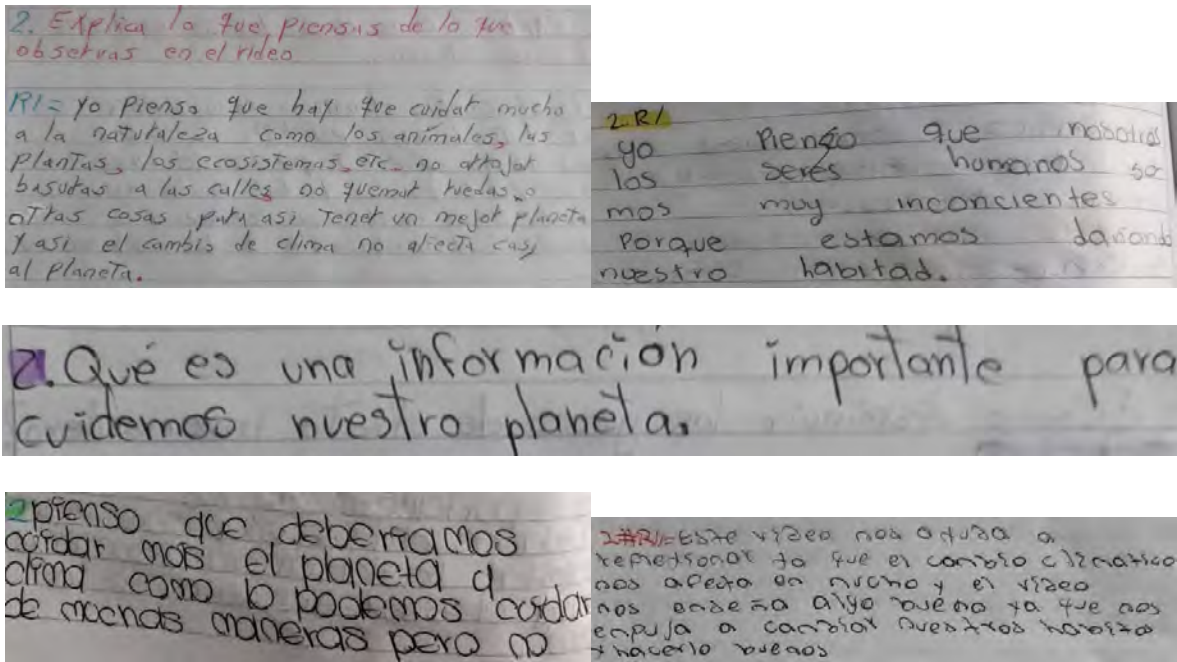 2. Explica lo que piensas de lo que
observas en el video
R/= yo pienso que hay que cuidar mucho
a la naturaleza como los animales, las
plantas, los ecosistemas, etc. no arrojar
basuras a las calles no quemar ruedas o
otras cosas para asi tener un mejor planeta
y asi el cambio de clima no afecta casi
al planeta.
2. R/
yo piengo que nosotros
los seres humanos so
mos muy inconcientes
porque estamos dañando
nuestro habitad.
2. Qué es una información importante para
cuidemos nuestro planeta.
2 pienso que deberiamos
cuidar mas el planeta
clima como lo podemos cuidar
de muchas maneras pero no
2#R//= Este video nos ayuda a
que el cambio climatico
nos afecta en mucho y el video
nos enseña algo bueno ya que nos
enpuja a cambiar nuestros habitos
y hacerlo buenos